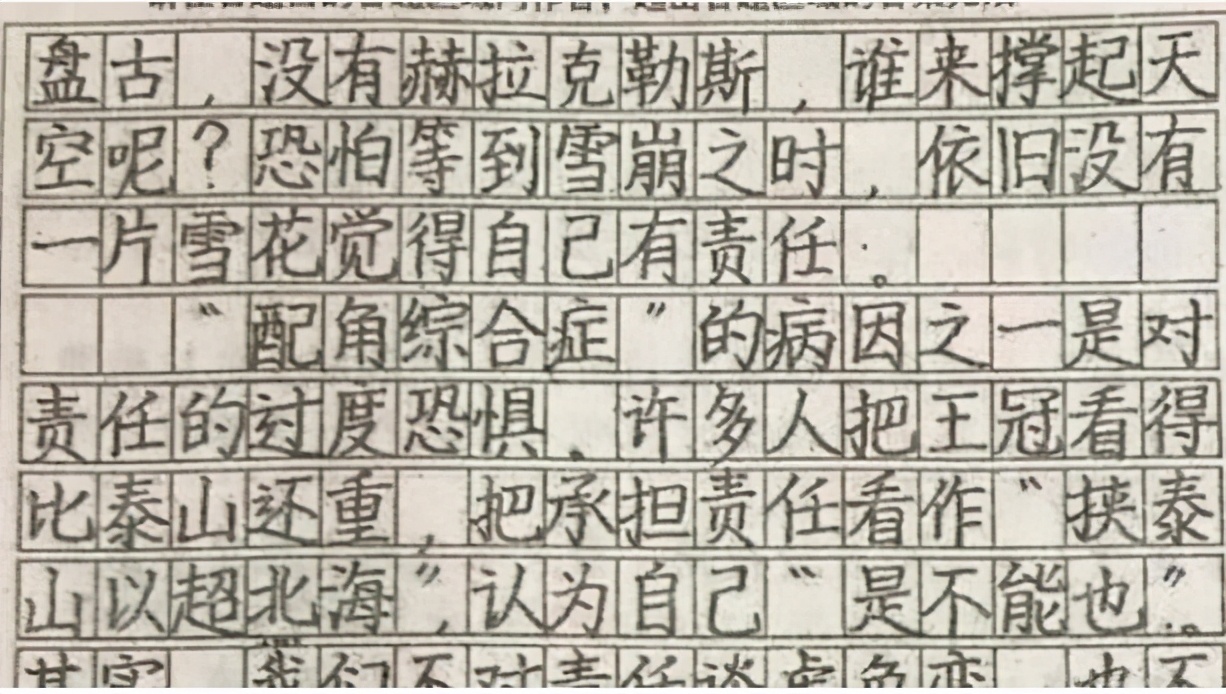 盘古,没有赫拉克勒斯,谁来撑起天
空呢?恐怕等到雪崩之时,依旧没有
一片雪花觉得自己有责任。
“配角综合症”的病因之一是对
责任的过度恐惧.许多人把王冠看得
比泰山还重,把承担责任看作“挟泰
山以超北海”,认为自己“是不能也”。
其实 我们不对责任谈虎色变 也不